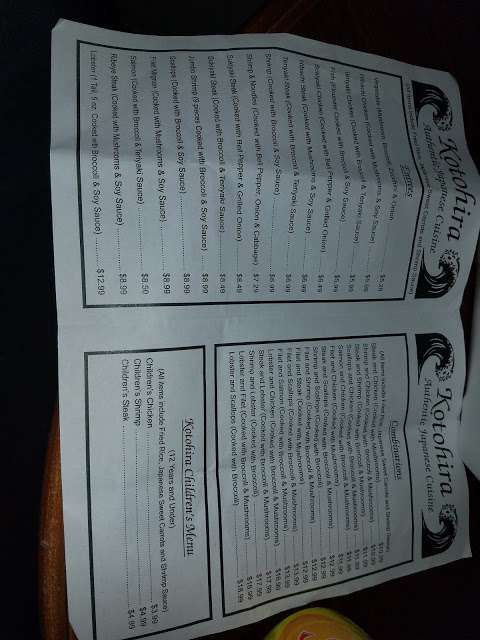 Kotohira
Authentic Japanese Cuisine
Entrees
Vegetable (Mushroom, Broccoli, Zucchini & Onion) $5.29
Hibachi Chicken (Cooked with Mushrooms & Soy Sauce)
Teriyaki Chicken (Cooked with Broccoli & Teriyaki Sauce)
Chicken (Cooked with Broccoli & Soy Sauce)
Sukiyaki Chicken (Cooked with Bell Pepper & Grilled Onion)
Hibachi Steak (Cooked with Mushrooms & Soy Sauce)
Teriyaki Steak (Cooked with Broccoli & Teriyaki Sauce) $6.99
Shrimp (Cooked with Broccoli & Soy Sauce) $6.99
Shrimp & Noodles (Cooked with Bell Pepper, Onion & Cabbage) $7.29
Sukiyaki Steak (Cooked with Bell Pepper & Grilled Onion) $8.49
Sukiyaki Steak (Cooked with Broccoli & Soy Sauce) $8.49
Jumbo Shrimp (9 pieces Cooked with Broccoli & Soy Sauce) $8.99
Scallops (Cooked with Broccoli & Soy Sauce) $8.99
Filet Mignon (Cooked with Mushrooms & Soy Sauce) $8.99
Salmon (Cooked with Broccoli & Teriyaki Sauce) $8.50
Ribeye Steak (Cooked with Mushrooms & Soy Sauce) $8.99
Lobster (1 Tail, 5 oz. Cooked with Broccoli & Soy Sauce) $12.99
Kotohira
Authentic Japanese Cuisine
Combinations
(All items include Fried Rice, Japanese Sweet Carrots and Shrimp Sauce)
Steak and Chicken (Cooked with Mushrooms) $10.99
Shrimp and Chicken (Cooked with Broccoli & Mushrooms) $10.99
Steak and Shrimp (Cooked with Broccoli & Mushrooms) $11.99
Scallops and Chicken (Cooked with Broccoli & Mushrooms) $11.99
Salmon and Chicken (Cooked with Broccoli & Mushrooms) $11.99
Filet and Chicken (Cooked with Mushrooms) $12.99
Steak and Scallops (Cooked with Broccoli & Mushrooms) $12.99
Shrimp and Scallops (Cooked with Broccoli) $12.99
Filet and Shrimp (Cooked with Broccoli & Mushrooms) $12.99
Filet and Steak (Cooked with Mushrooms) $13.99
Filet and Scallops (Cooked with Broccoli & Mushrooms) $13.99
Filet and Salmon (Cooked with Broccoli & Mushrooms)
Lobster and Chicken (Cooked with Broccoli & Mushrooms) $16.99
Steak and Lobster (Cooked with Broccoli & Mushrooms) $17.99
Shrimp and Lobster (Cooked with Broccoli) $17.99
Lobster and Filet (Cooked with Broccoli & Mushrooms) $18.99
Lobster and Scallops (Cooked with Broccoli) $18.99
Kotohira Children's Menu
(12 Years and Under)
(All items include Fried Rice, Japanese Sweet Carrots and Shrimp Sauce)
Children's Chicken $3.99
Children's Shrimp $4.99
Children's Steak $4.95